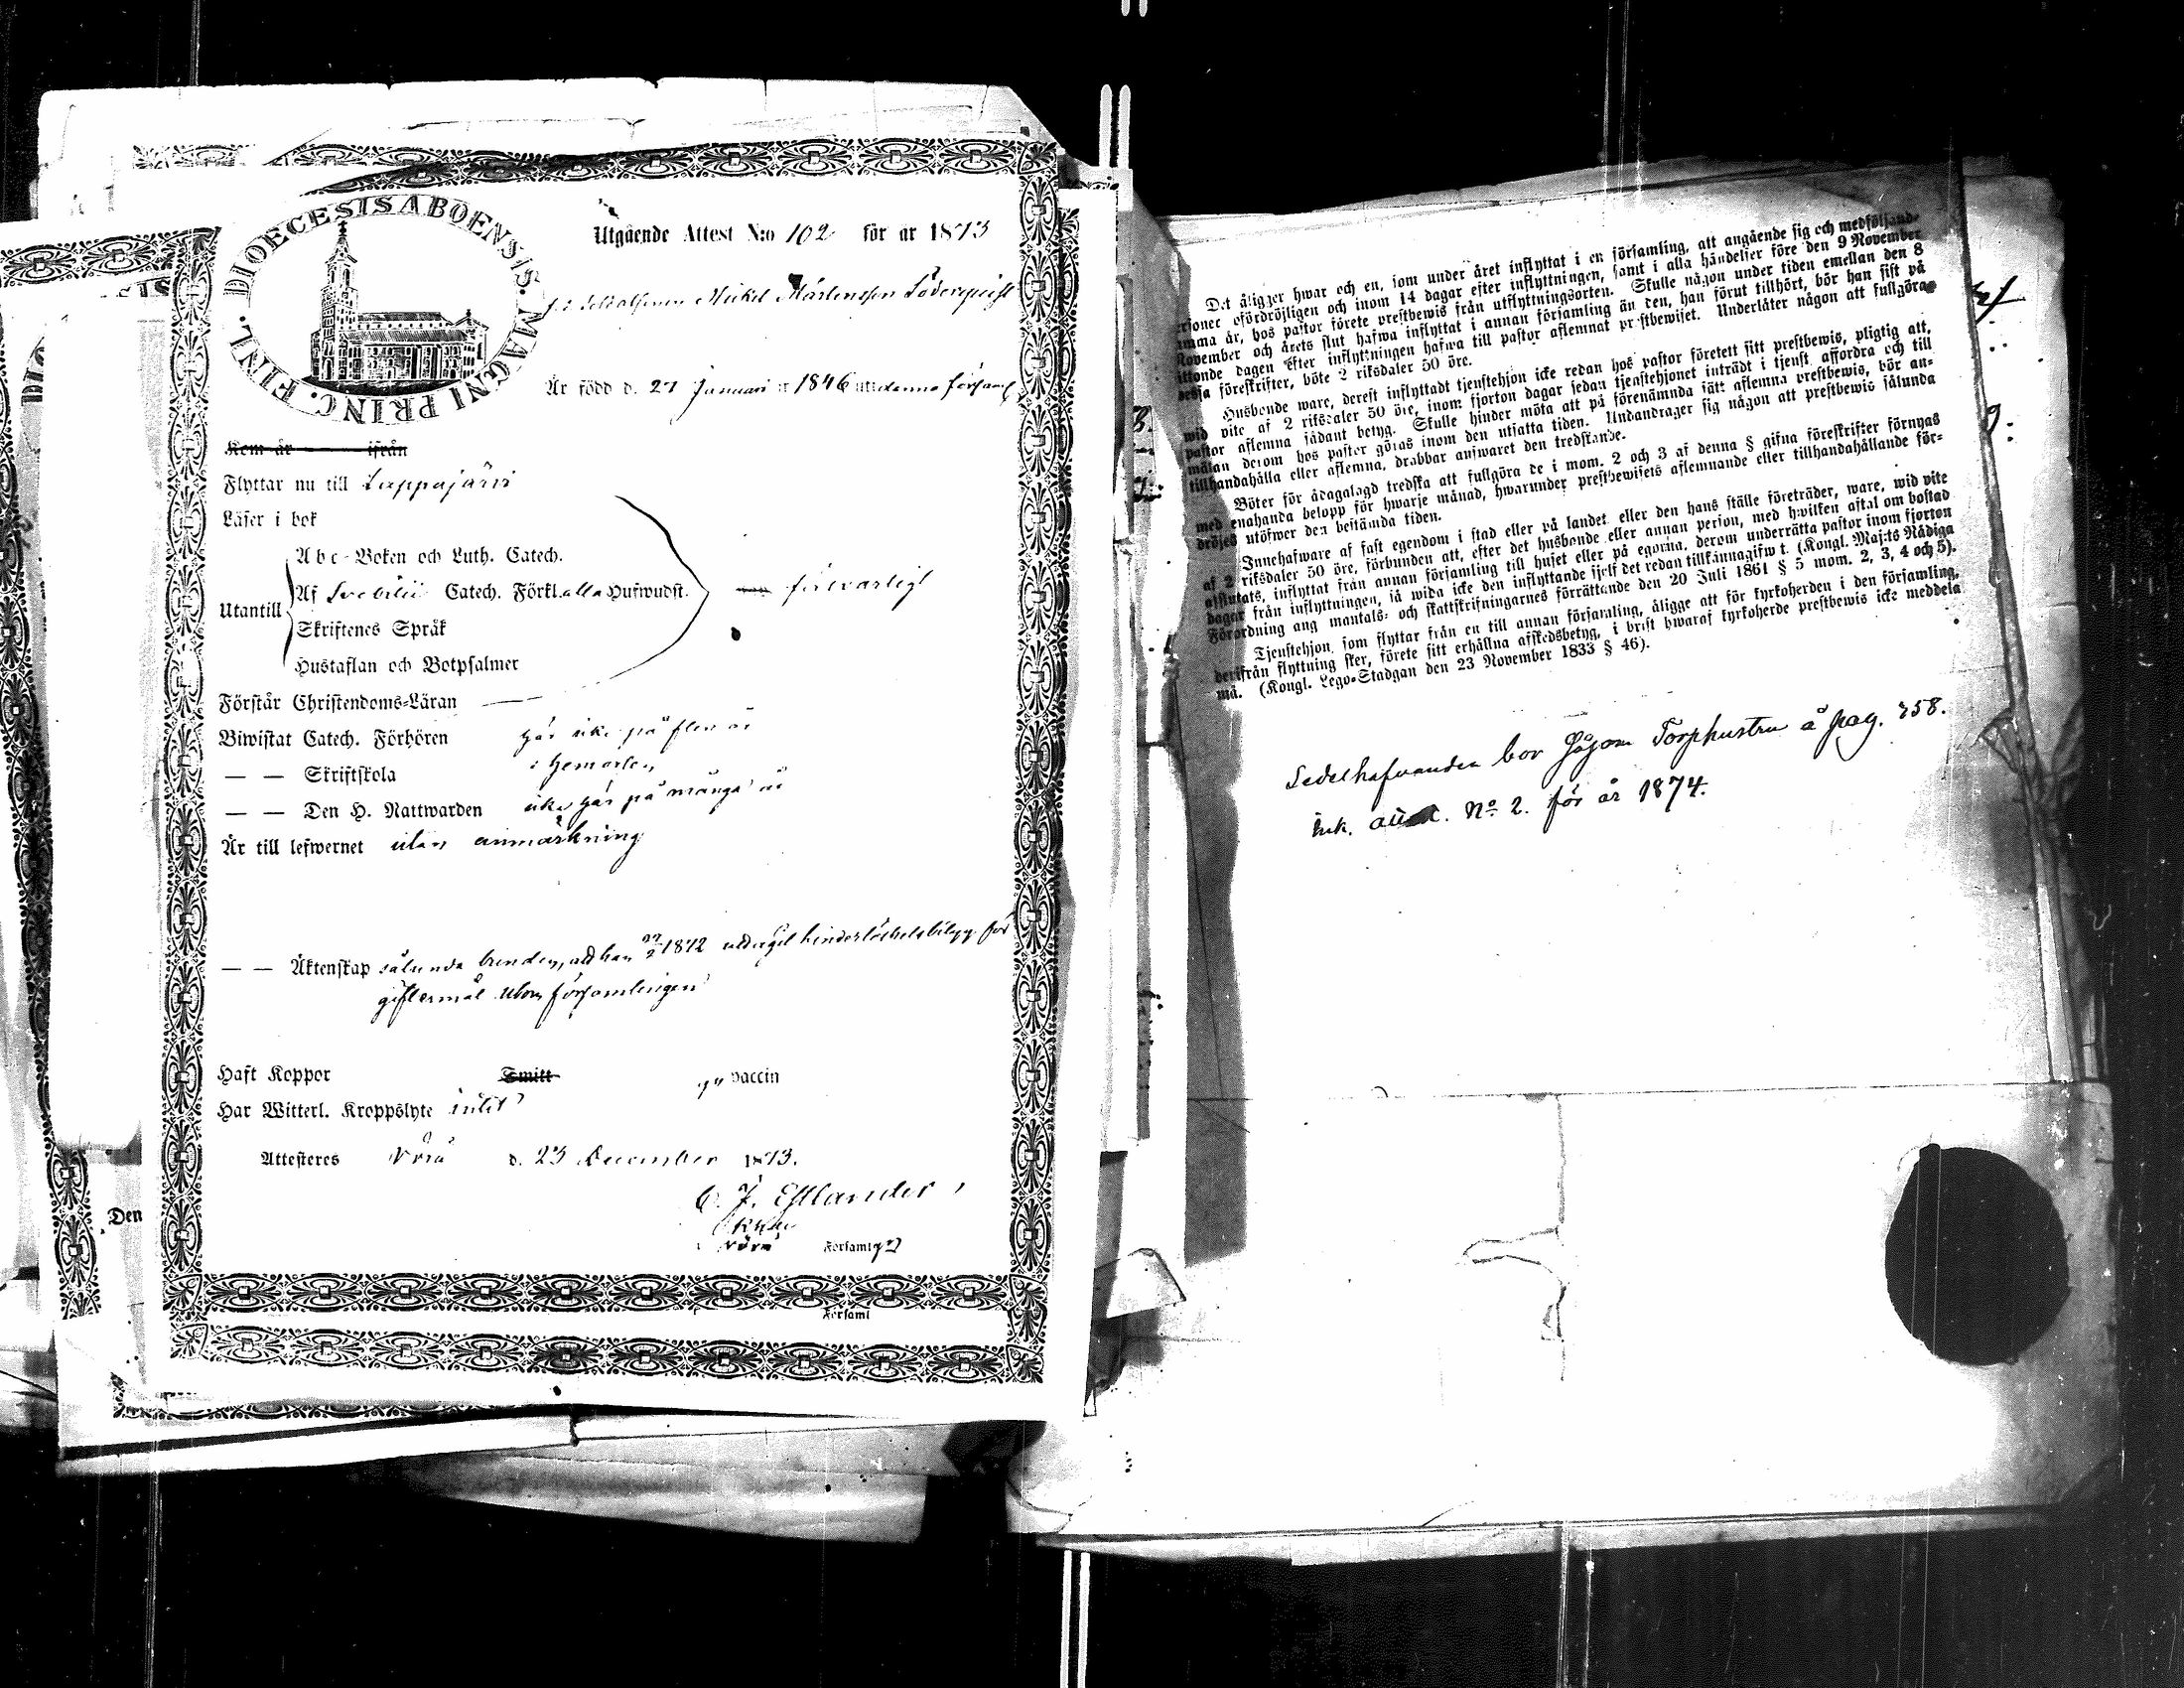 DIOECESIS ABOENSIS. MAGNI PRINC. FINL.
Utgående Attest N:o 102 för år 1873
Mickel Mårtensson Söderqvist
Är född d. 27 Januari år 1846 uti denna församl
Kom år ifrån
Flyttar nu till Lappajärvi
Läser i bok
Utantill
Abc-Boken och Luth. Catech.
Af Svebilii Catech. Förkl. alla Hufwudst.
Skriftenes Språk
Hustaflan och Botpsalmer
försvarligt
Förstår Christendoms-Läran —
Biwistat Catech. Förhören här icke på flera år
— — Skriftskola i hemorten
— — Den H. Nattwarden icke här på många år
Är till lefwernet utan anmärkning
— — Äktenskap sålunda bunden, att han 1872 uttagit hinderlöshetsbetyg för
giftermål utom församlingen
Haft Koppor Smitt vaccin
Har Witterl. Kroppslyte intet
Attesteres Vörå d. 23 December 1873.
C. J. Estlander
Vörå Församlgn
Församl
Den
Det åligger hwar och en, som under året inflyttat i en församling, att angående sig och medföljande
personer ofördröjligen och inom 14 dagar efter inflyttningen, samt i alla händelser före den 9 November
samma år, hos pastor förete prestbewis från utflyttningsorten. Skulle någon under tiden emellan den 8
November och årets slut hafwa inflyttat i annan församling än den, han förut tillhört, bör han sist på
åttonde dagen efter inflyttningen hafwa till pastor aflemnat prestbewiset. Underlåter någon att fullgöra
dessa föreskrifter, böte 2 riksdaler 50 öre.
Husbonde ware, derest inflyttadt tjenstehjon icke redan hos pastor företett sitt prestbewis, pligtig att,
wid vite af 2 riksdaler 50 öre, inom fjorton dagar sedan tjenstehjonet inträdt i tjenst affordra och till
pastor aflemna sådant betyg. Skulle hinder möta att på förenämnda sätt aflemna prestbewis, bör an-
mälan derom hos pastor göras inom den utsatta tiden. Undandrager sig någon att prestbewis sålunda
tillhandahålla eller aflemna, drabbar answaret den tredskande.
Böter för ådagalagd tredska att fullgöra de i mom. 2 och 3 af denna § gifna föreskrifter förnyas
med enahanda belopp för hwarje månad, hwarunder prestbewisets aflemnande eller tillhandahållande för-
dröjes utöfwer den bestämda tiden.
Innehafware af fast egendom i stad eller på landet eller den hans ställe företräder, ware, wid vite
af 2 riksdaler 50 öre, förbunden att, efter det husbonde eller annan person, med hwilken aftal om bostad
afslutats, inflyttat från annan församling till huset eller på egorna, derom underrätta pastor inom fjorton
dagar från inflyttningen, så wida icke den inflyttande sjelf det redan tillkännagifwit. (Kongl. Maj:ts Nådiga
Förordning ang mantals- och skattskrifningarnes förrättande den 20 Juli 1861 § 5 mom. 2, 3, 4 och 5).
Tjenstehjon, som flyttar från en till annan församling, åligge att för kyrkoherden i den församling,
derifrån flyttning sker, förete sitt erhållna afskedsbetyg, i brist hwaraf kyrkoherde prestbewis icke meddela
må. (Kongl. Lego-Stadgan den 23 November 1833 § 46).
Sedelhafvanden bor såsom å pag. 358.
ink. No 2. för år 1874.